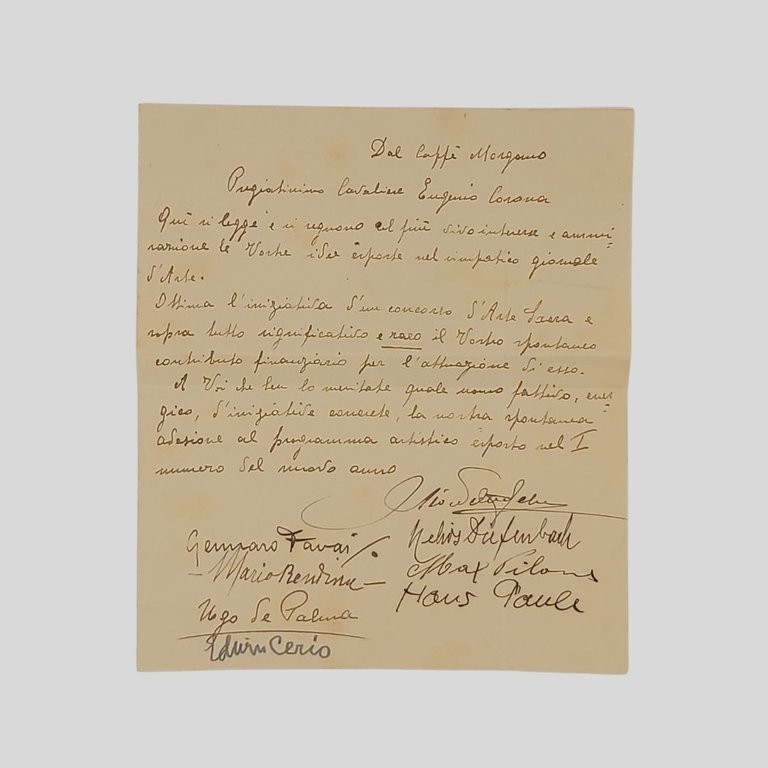 Dal Caffè Morgano
Pregiatissimo Cavaliere Eugenio Corona
Qui si legge e si seguono col più vivo interesse e ammi-
razione le Vostre idee esposte nel simpatico giornale
d'Arte.
Ottima l'iniziativa d'un concorso d'Arte Sacra e
sopra tutto significativo e raro il Vostro spontaneo
contributo finanziario per l'attuazione di esso.
A Voi che ben lo meritate quale uomo fattivo, ener-
gico, d'iniziative concrete, la nostra spontanea
adesione al programma artistico esposto nel I
numero del nuovo anno
Gennaro Favai
Mario Rendina
Ugo de Palma
Edwin Cerio
Diefenbach
Max Pilone
Hans Paule